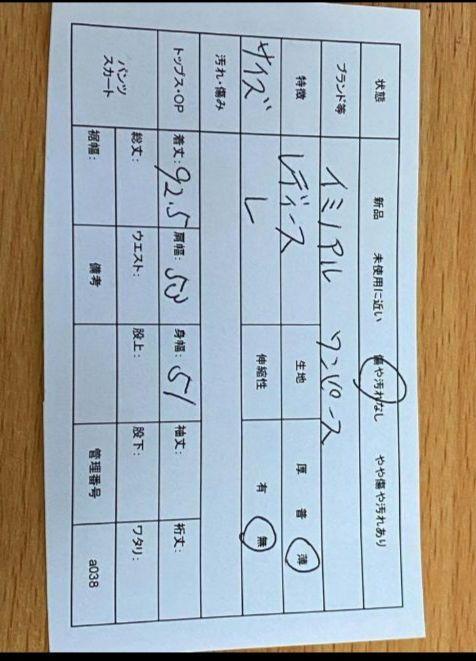 状態 新品 未使用に近い 傷や汚れなし やや傷や汚れあり
ブランド等 イミノアル ワンピース
特徴 レディース 生地 厚 普 薄
サイズ L 伸縮性 有 無
汚れ・傷み
トップス・OP 着丈: 92.5 肩幅: 50 身幅: 51 袖丈: 裄丈:
パンツ スカート 総丈: ウエスト: 股上: 股下: ワタリ:
裾幅: 備考 管理番号 a038